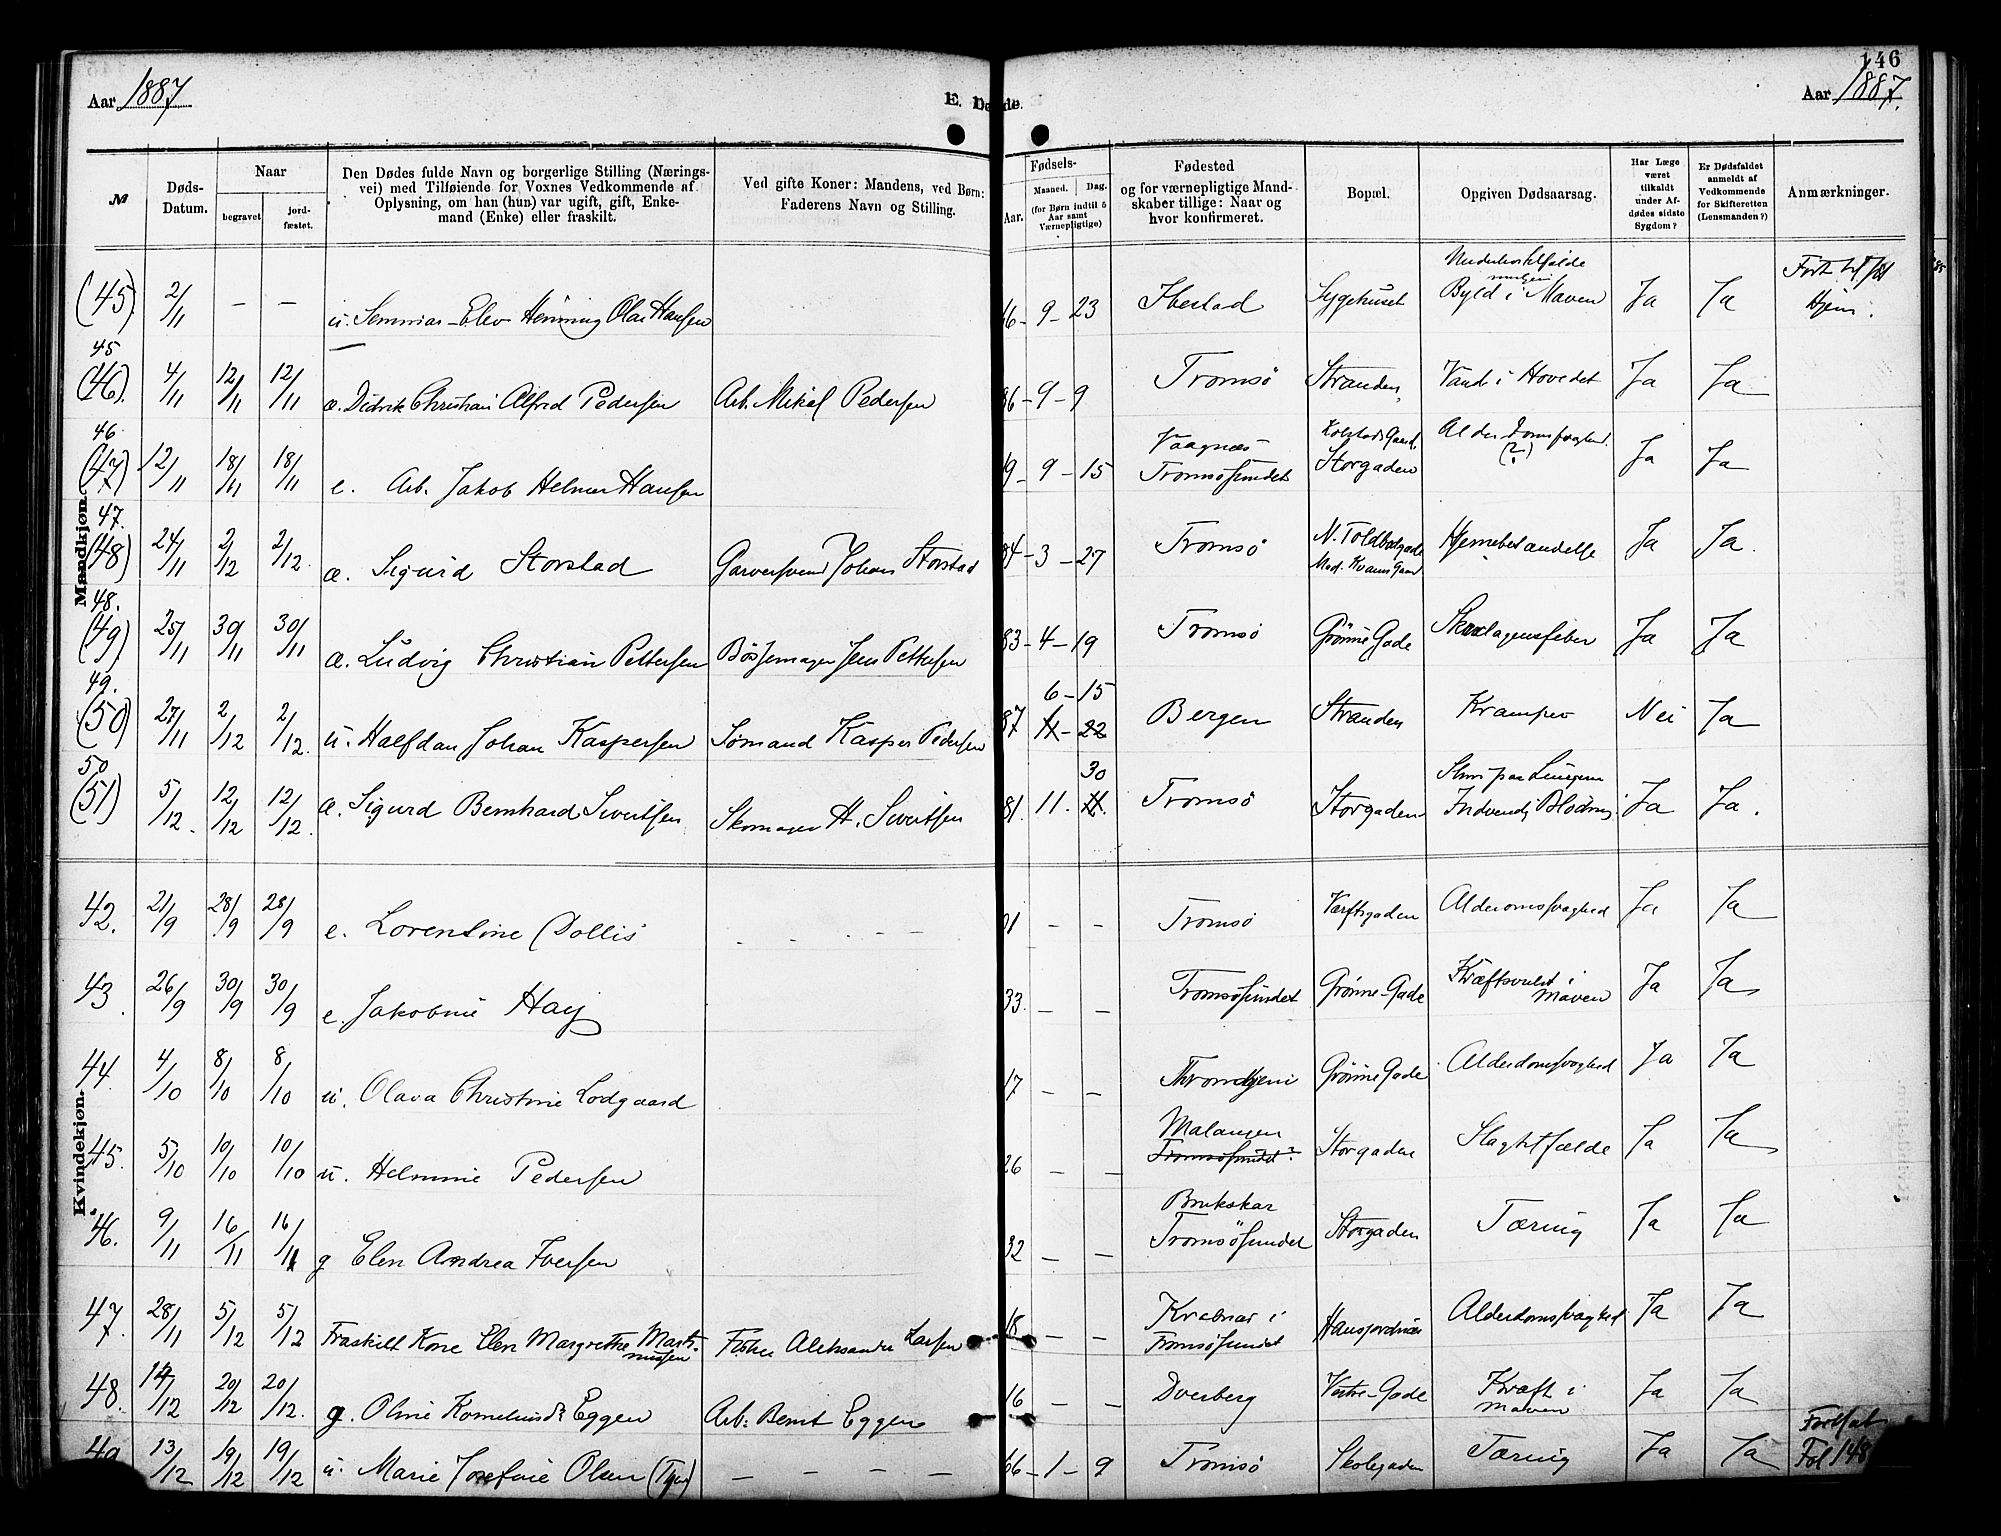 146
Aar 1887
E. Døde.
Aar 1887.
№
Døds-Datum.
Naar
begravet
jordfæstet.
Den Dødes fulde Navn og borgerlige Stilling (Næringsvei) med Tilføiende for Voxnes Vedkommende af Oplysning, om han (hun) var ugift, gift, Enkemand (Enke) eller fraskilt.
Ved gifte Koner: Mandens, ved Børn: Faderens Navn og Stilling.
Fødsels-
Aar.
Maaned.
Dag.
(for Børn indtil 5 Aar samt Værnepligtige)
Fødested
og for værnepligtige Mandskaber tillige: Naar og hvor konfirmeret.
Bopæl.
Opgiven Dødsaarsag.
Har Læge været tilkaldt under Afdødes sidste Sygdom?
Er Dødsfaldet anmeldt af Vedkommende for Skifteretten (Lensmanden?)
Anmærkninger.
Mandkjøn.
(45) 2/11 – – u. Seminar-Elev Henning Olai Hansen 66 – 9 – 23 Ibestad Sygehuset Byld i Maven Ja Ja Hjem.
45 (46). 4/11 12/11 12/11 æ. Didrik Christian Alfred Pedersen Arb. Mikal Pedersen 86 – 9 – 9 Tromsø Stranden Vand i Hovedet Ja Ja
46 (47) 12/11 18/11 18/11 e. Arb. Jakob Helmer Hansen 19 – 9 – 15 Vaagnæs Tromsøsundet Storgaden Alderdomssvaghed (?) Ja Ja
47. (48) 24/11 2/12 2/12. æ. Sigurd Storstad Garversvend Johan Storstad 84 – 3 – 27 Tromsø N. Toldbodgade Hjernebetændelse Ja Ja.
48. (49) 25/11 30/11 30/11 æ. Ludvig Christian Pettersen Bøssemager Jens Pettersen 83 – 4 – 19 Tromsø Grønne Gade Skarlagensfeber Ja Ja
49. (50) 27/11 2/12 2/12. u. Halfdan Johan Kaspersen Sømand Kasper Pedersen 87 6 – 15 11 – 22 Bergen Stranden Kramper Nei Ja
50 (51) 5/12. 12/12 12/12. æ. Sigurd Bernhard Sivertsen Skomager H. Sivertsen 81. 11. 30 Tromsø Storgaden Slim paa Lungerne Indvendig Blødning Ja Ja.
Kvindekjøn.
42. 21/9 28/9 28/9 e. Lorentine Dollis 01 – – Tromsø Værftsgaden Alderomssvaghed Ja Ja
43. 26/9 30/9 30/9 e. Jakobine Hay 33. – – Tromsøsundet Grønne-Gade Kræftsvulst i Maven Ja Ja
44. 4/10 8/10 8/10 u. Olava Christine Lodgaard 17 – – Throndhjem Grønne Gade Alderdomssvaghed Ja Ja
45. 5/10 10/10 10/10 u. Helmine Pedersen 26 – – Malangen Tromsøsundet? Storgaden Slagtilfælde Ja Ja
46. 9/11 16/11 16/11 g Elen Andrea Iversen 32 – – Tromsøsundet Storgaden Tæring Ja Ja
47. 28/11 5/12 5/12 Fraskilt Kone Elen Margrethe Martinussen Fisker Aleksander Larsen 18 – – Krabnæs i Tromsøsundet Hansjordnæs Alderdomssvaghed Ja Ja
48. 14/12 20/12 20/12. g. Oline Kornelius d: Eggen Arb: Bernt Eggen 16 – – Dverberg Vestre-Gade Kræft i Maven Ja Ja
49 13/12 19/12 19/12 u. Marie Josefine Olsen – – – – 66 – 1 – 9 Tromsø Skolegaden Tæring Ja Ja
Fortsat Fol 148